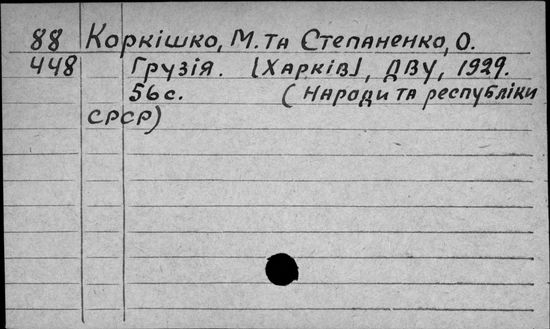 88 Коркішко, М. та Степаненко, О.
448 Грузія. [Харків], ДВУ, 1929.
56 с. (Народи та республіки
СРСР)